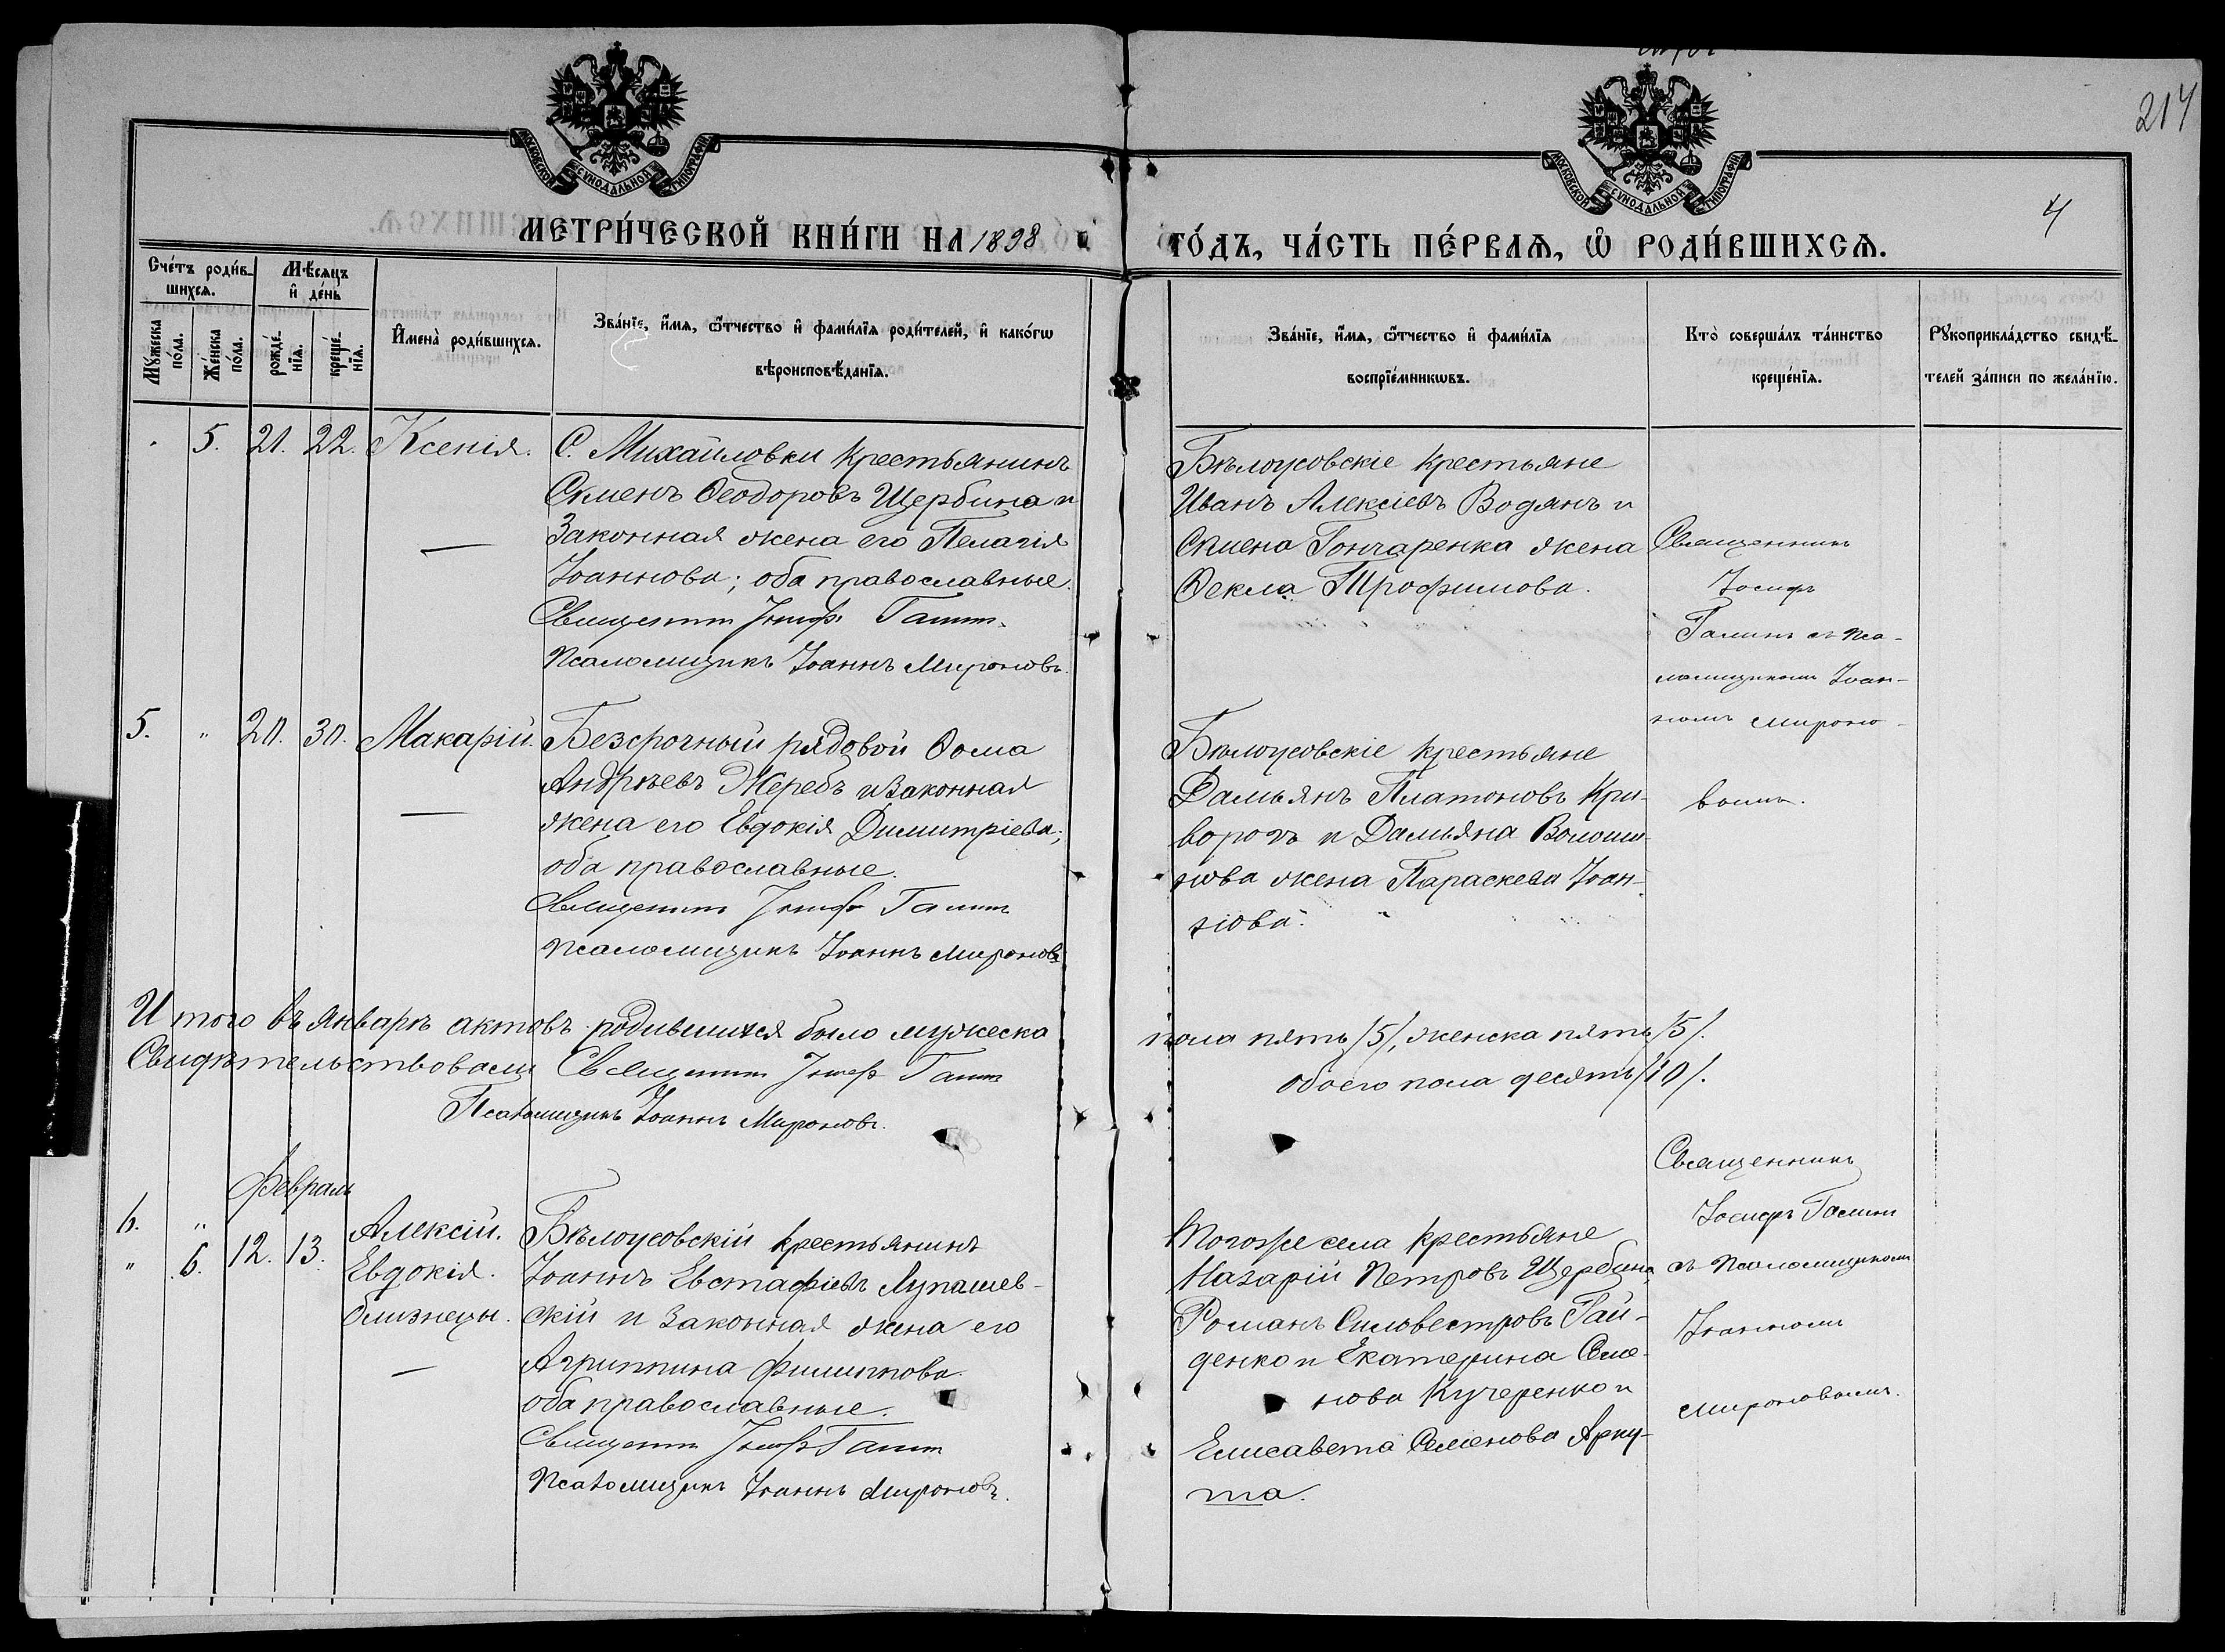 217
4
МОСКОВСКОЙ СѴНОДАЛЬНОЙ ТИПОГРАФІИ
МОСКОВСКОЙ СѴНОДАЛЬНОЙ ТИПОГРАФІИ
МЕТРИ́ЧЕСКОЙ КНИ́ГИ НА 1898 ГО́ДЪ, ЧА́СТЬ ПЕ́РВАѦ, Ѡ҆ РОДИ́ВШИХСѦ.
Сче́тъ роди́в-
шихсѧ.
Мѣ́сѧцъ
и҆ де́нь
Мꙋ́жеска
по́ла.
Же́нска
по́ла.
рожде́-
нїѧ.
креще́-
нїѧ.
И҆мена̀ роди́вшихсѧ.
Зва́нїе, и҆́мѧ, ѻ҆́тчество и҆ фами́лїѧ роди́телей, и҆ како́гѡ
вѣроисповѣ́данїѧ.
Зва́нїе, и҆́мѧ, ѻ҆́тчество и҆ фами́лїѧ
воспрїе́мникѡвъ.
Кто̀ соверша́лъ та́инство
креще́нїѧ.
Рꙋкоприкла́дство свидѣ́-
телей за́писи по жела́нїю.
5. 21. 22. Ксенія.
С. Михайловки крестьянинъ
Сименъ Ѳеодоровъ Щербина и
Законная жена его Пелагія
Іоаннова; оба православные.
Священникъ Іосифъ Галинъ
Псаломщикъ Іоаннъ Мироновъ.
Бѣлоусовскіе крестьяне
Иванъ Алексіевъ Водянъ и
Симена Гончаренка жена
Ѳекла Трофимова.
Священникъ
Іосифъ
Галинъ съ Пса-
ломщикомъ Іоан-
номъ Мироно-
вымъ.
5. " 20. 30. Макарій.
Безсрочный рядовой Ѳома
Андрѣевъ Жеребъ и Законная
жена его Евдокія Димитріева;
оба православные.
Священникъ Іосифъ Галинъ
Псаломщикъ Іоаннъ Мироновъ
Бѣлоусовскіе крестьяне
Дамьянъ Платоновъ Кри-
ворогъ и Дамьяна Волоши-
нова жена Параскева Іоан-
нова.
Итого въ Январѣ актовъ родившихся было мужеска пола пять /5/, женска пять /5/.
обоего пола десять /10/.
Свидѣтельствовали Священникъ Іосифъ Галинъ
Псаломщикъ Іоаннъ Мироновъ.
Февраль
6. " Алексій.
" 6. 12. 13. Евдокія.
близнецы.
Бѣлоусовскій крестьянинъ
Іоаннъ Евстафіевъ Лупашев-
скій и Законная жена его
Агриппина Филиппова
оба православные.
Священникъ Іосифъ Галинъ
Псаломщикъ Іоаннъ Мироновъ.
Тогоже села крестьяне
Назарій Петровъ Щербина,
Романъ Сильвестровъ Гай-
денко и Екатерина Семе-
нова Кучеренко и
Елисавета Семенова Арку-
та.
Священникъ
Іосифъ Галинъ
съ Псаломщикомъ
Іоанномъ
Мироновымъ.